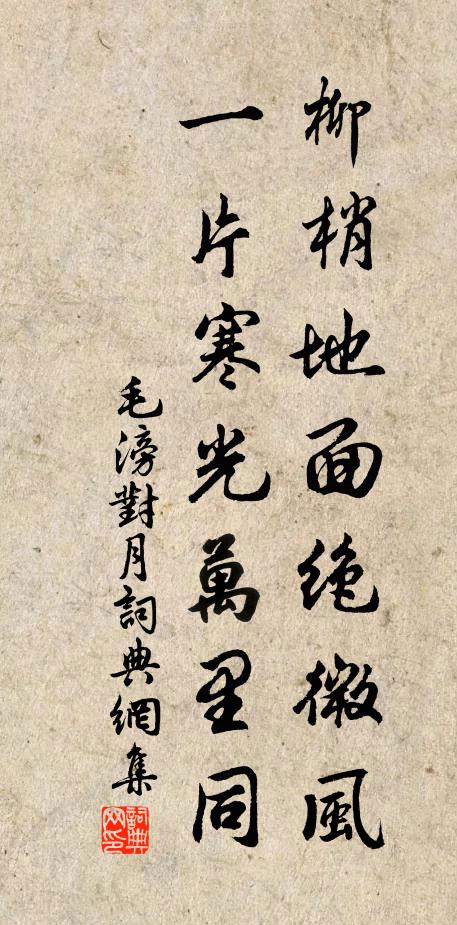 柳梢地面绝微風
一片寒光萬里同
毛滂對月詞典網集
詞典网印